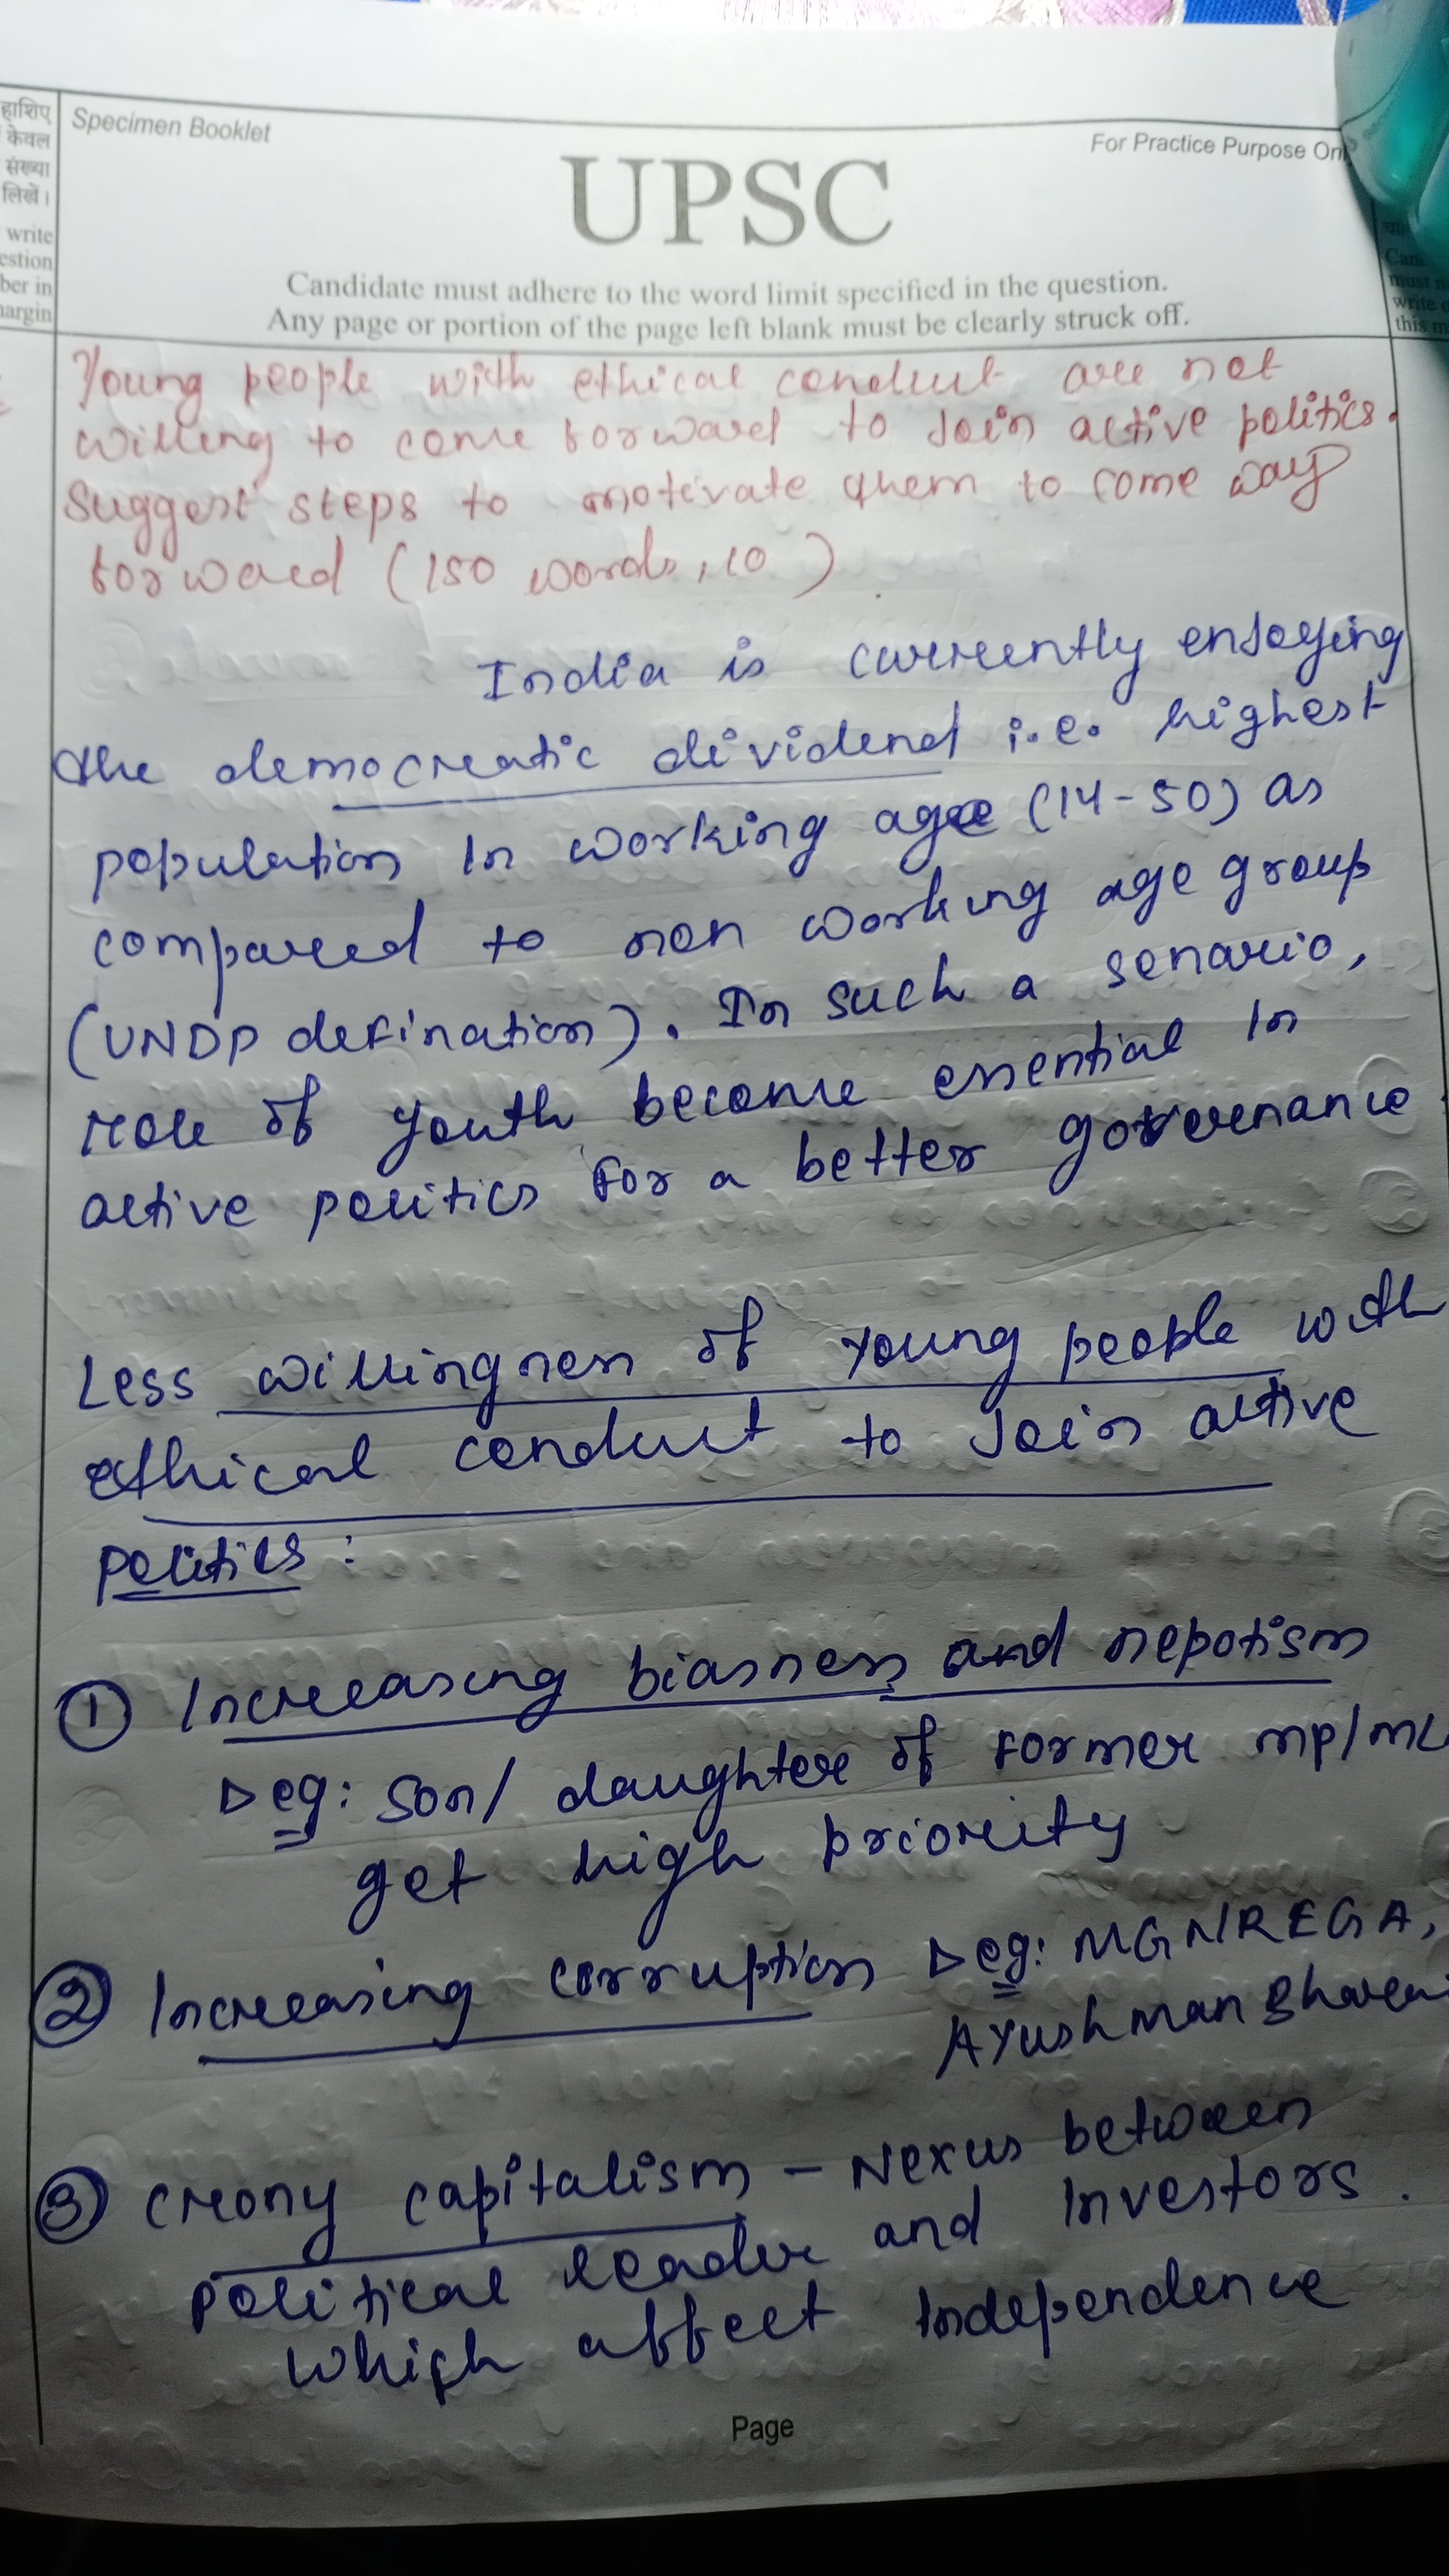 हाशिए
केवल
संख्या
लिखें।
write
estion
ber in
margin
Specimen Booklet
For Practice Purpose On
UPSC
Candidate must adhere to the word limit specified in the question.
Any page or portion of the page left blank must be clearly struck off.
must
write
this m
Young people with ethical conduct are not
willing to come forward to Join active politics.
Suggest steps to motivate them to come way
forward (150 words, 10)
India is currently enjoying
the democreatic dividend i.e. highest
population In working age (14-50) as
compared to non working age group
(UNDP defination). In such a senario,
role of youth become essential In
active politics For a better governance.
Less willingness of young people with
ethical conduct to Join active
Politics :
① Increasing biasness and nepotism
eg: Son/ daughter of Former MP/ML
get high priority
② Increasing corruption eg: MGNREGA,
Ayushman Bharat
③ Crony capitalism - Nexus between
Political leader and Investors.
which affect Independence
Page